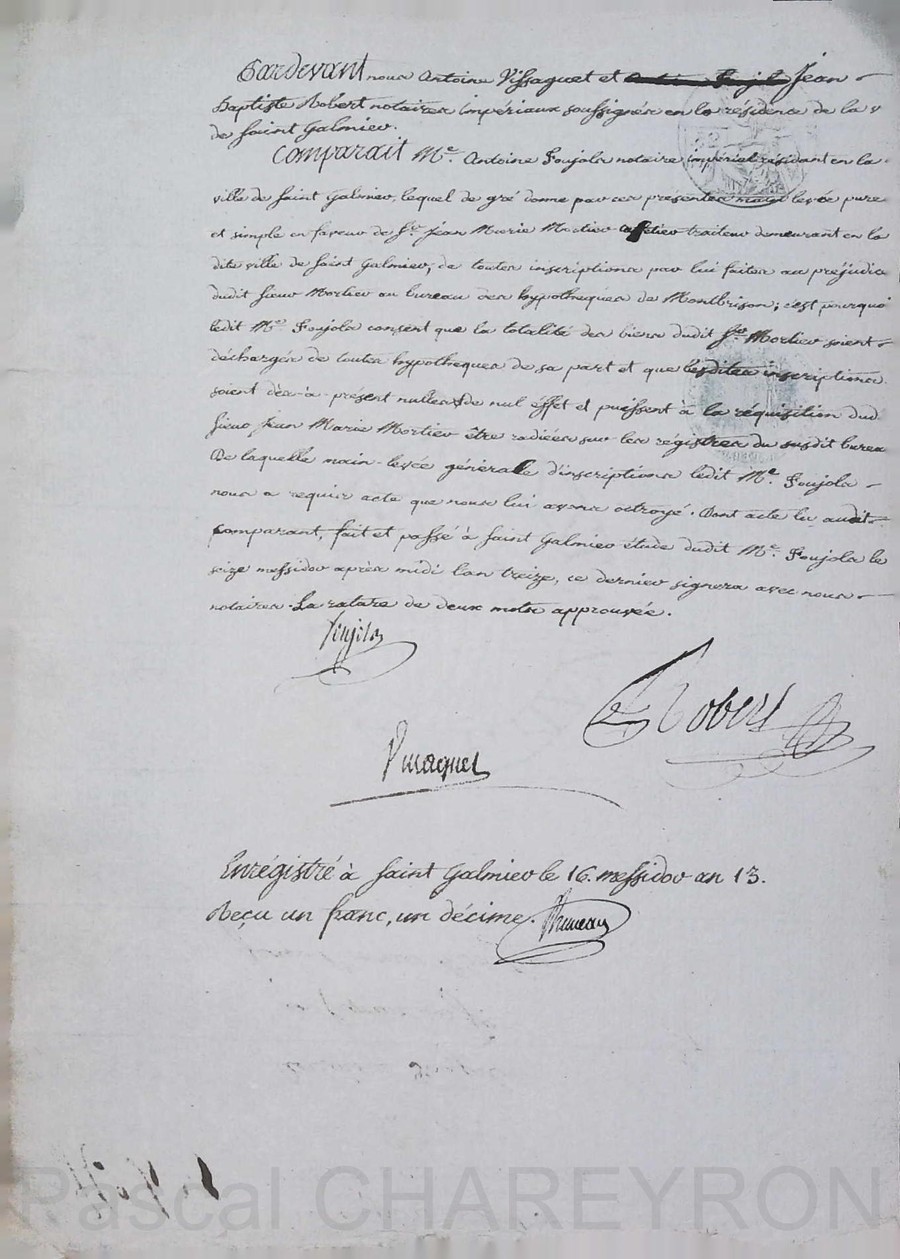 Pardevant nous Antoine Vissaguet et Jean
Baptiste Robert notaires impériaux soussignés en la résidence de la v
de Saint Galmier.
Comparait Me. Antoine Foujols notaire impérial résidant en la
ville de Saint Galmier, lequel de gré donne par ces présentes main levée pure
et simple en faveur de Sr. Jean Marie Mortier traiteur demeurant en la
dite ville de Saint Galmier, de toutes inscriptions par lui faites au préjudice
dudit sieur Mortier au bureau des hypotheques de Montbrison; c'est pourquoi
ledit Me. Foujols consent que la totalité des biens dudit Sr. Mortier soient
déchargés de toutes hypotheques de sa part et que lesdites inscriptions
soient dès-à-présent nulles & de nul effet et puissent à la réquisition dud.
sieur Jean Marie Mortier être radiées sur les régistres du susdit bureau
De laquelle main-levée générale d'inscriptions ledit Me. Foujols
nous a requis acte que nous lui avons octroyé. Dont acte lu audit
comparant, fait et passé à Saint Galmier étude dudit Me. Foujols le
seize messidor après midi l'an treize, ce dernier signera avec nous
notaires. La rature de deux mots approuvée.
Foujols
Robert
Vissaguet
Enrégistré à Saint Galmier le 16. messidor an 13.
Reçu un franc, un décime.
Pascal CHAREYRON